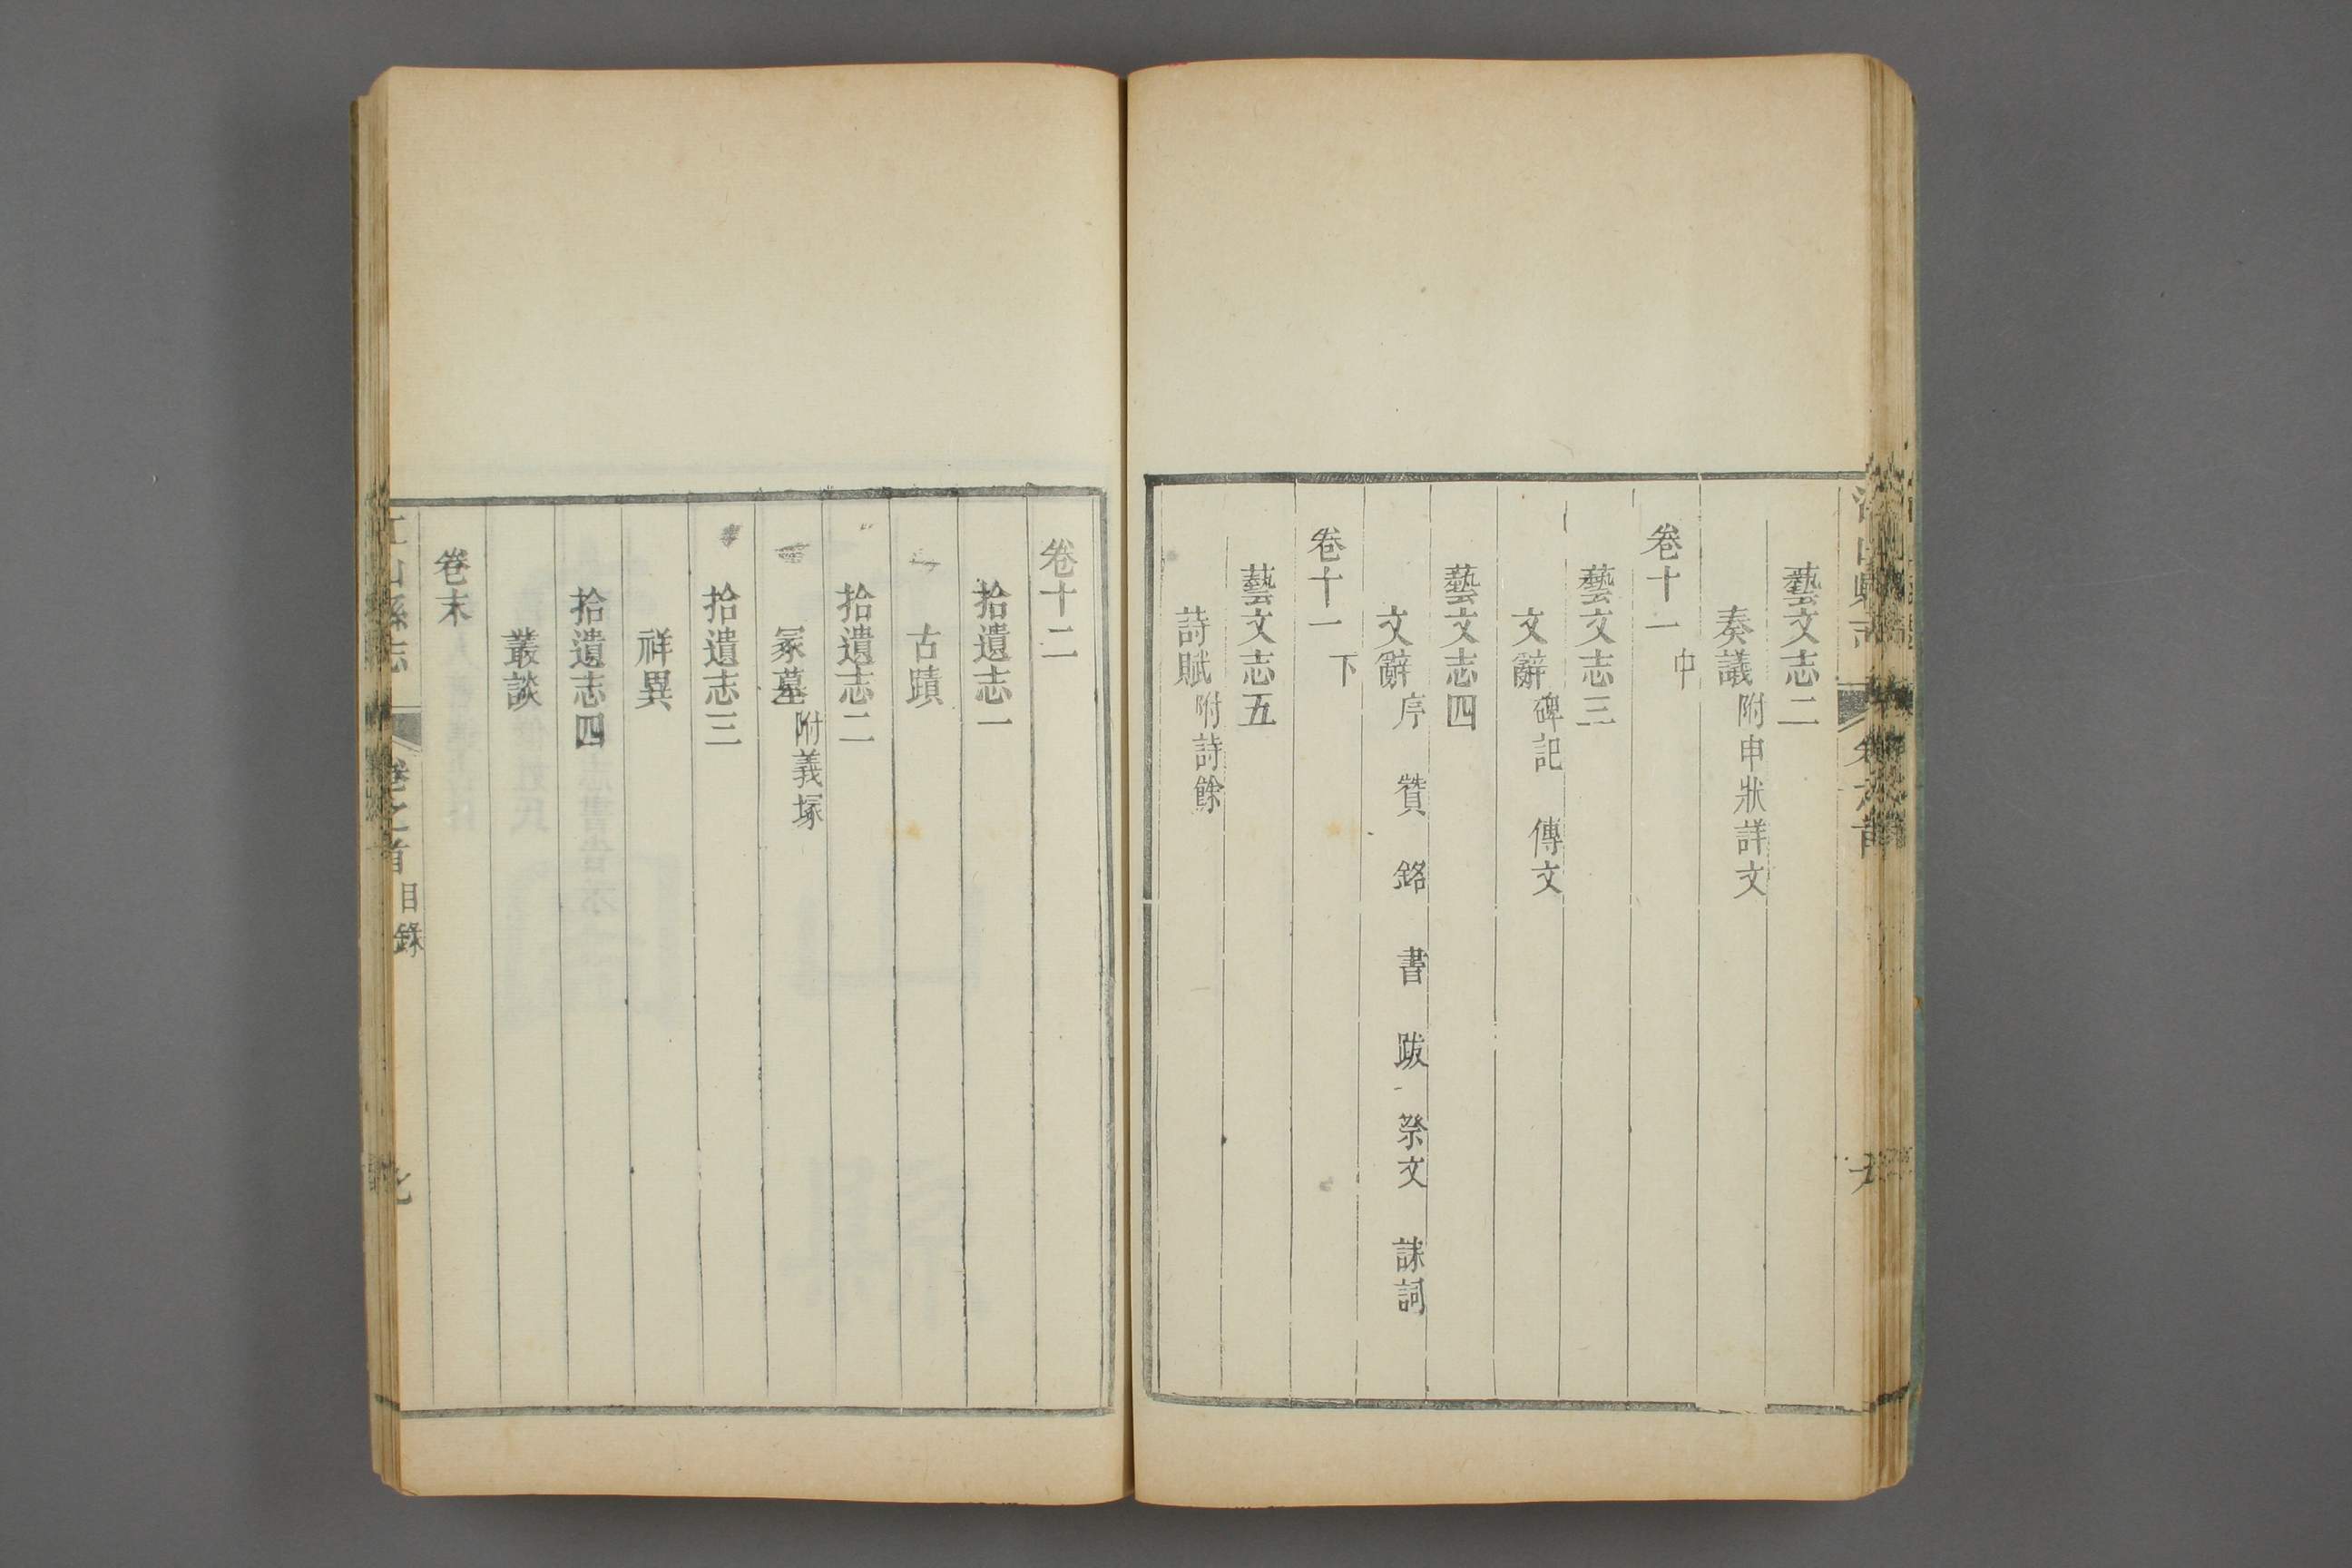 藝文志二
奏議 附申狀詳文
卷十一 中
藝文志三
文辭 碑記 傳文
藝文志四
文辭 序 贊 銘 書 跋 祭文 誄詞
卷十一 下
藝文志五
詩賦 附詩餘
卷十二
拾遺志一
古蹟
拾遺志二
冢墓 附義塚
拾遺志三
祥異
拾遺志四
叢談
卷末
江山縣志 卷之首 目錄